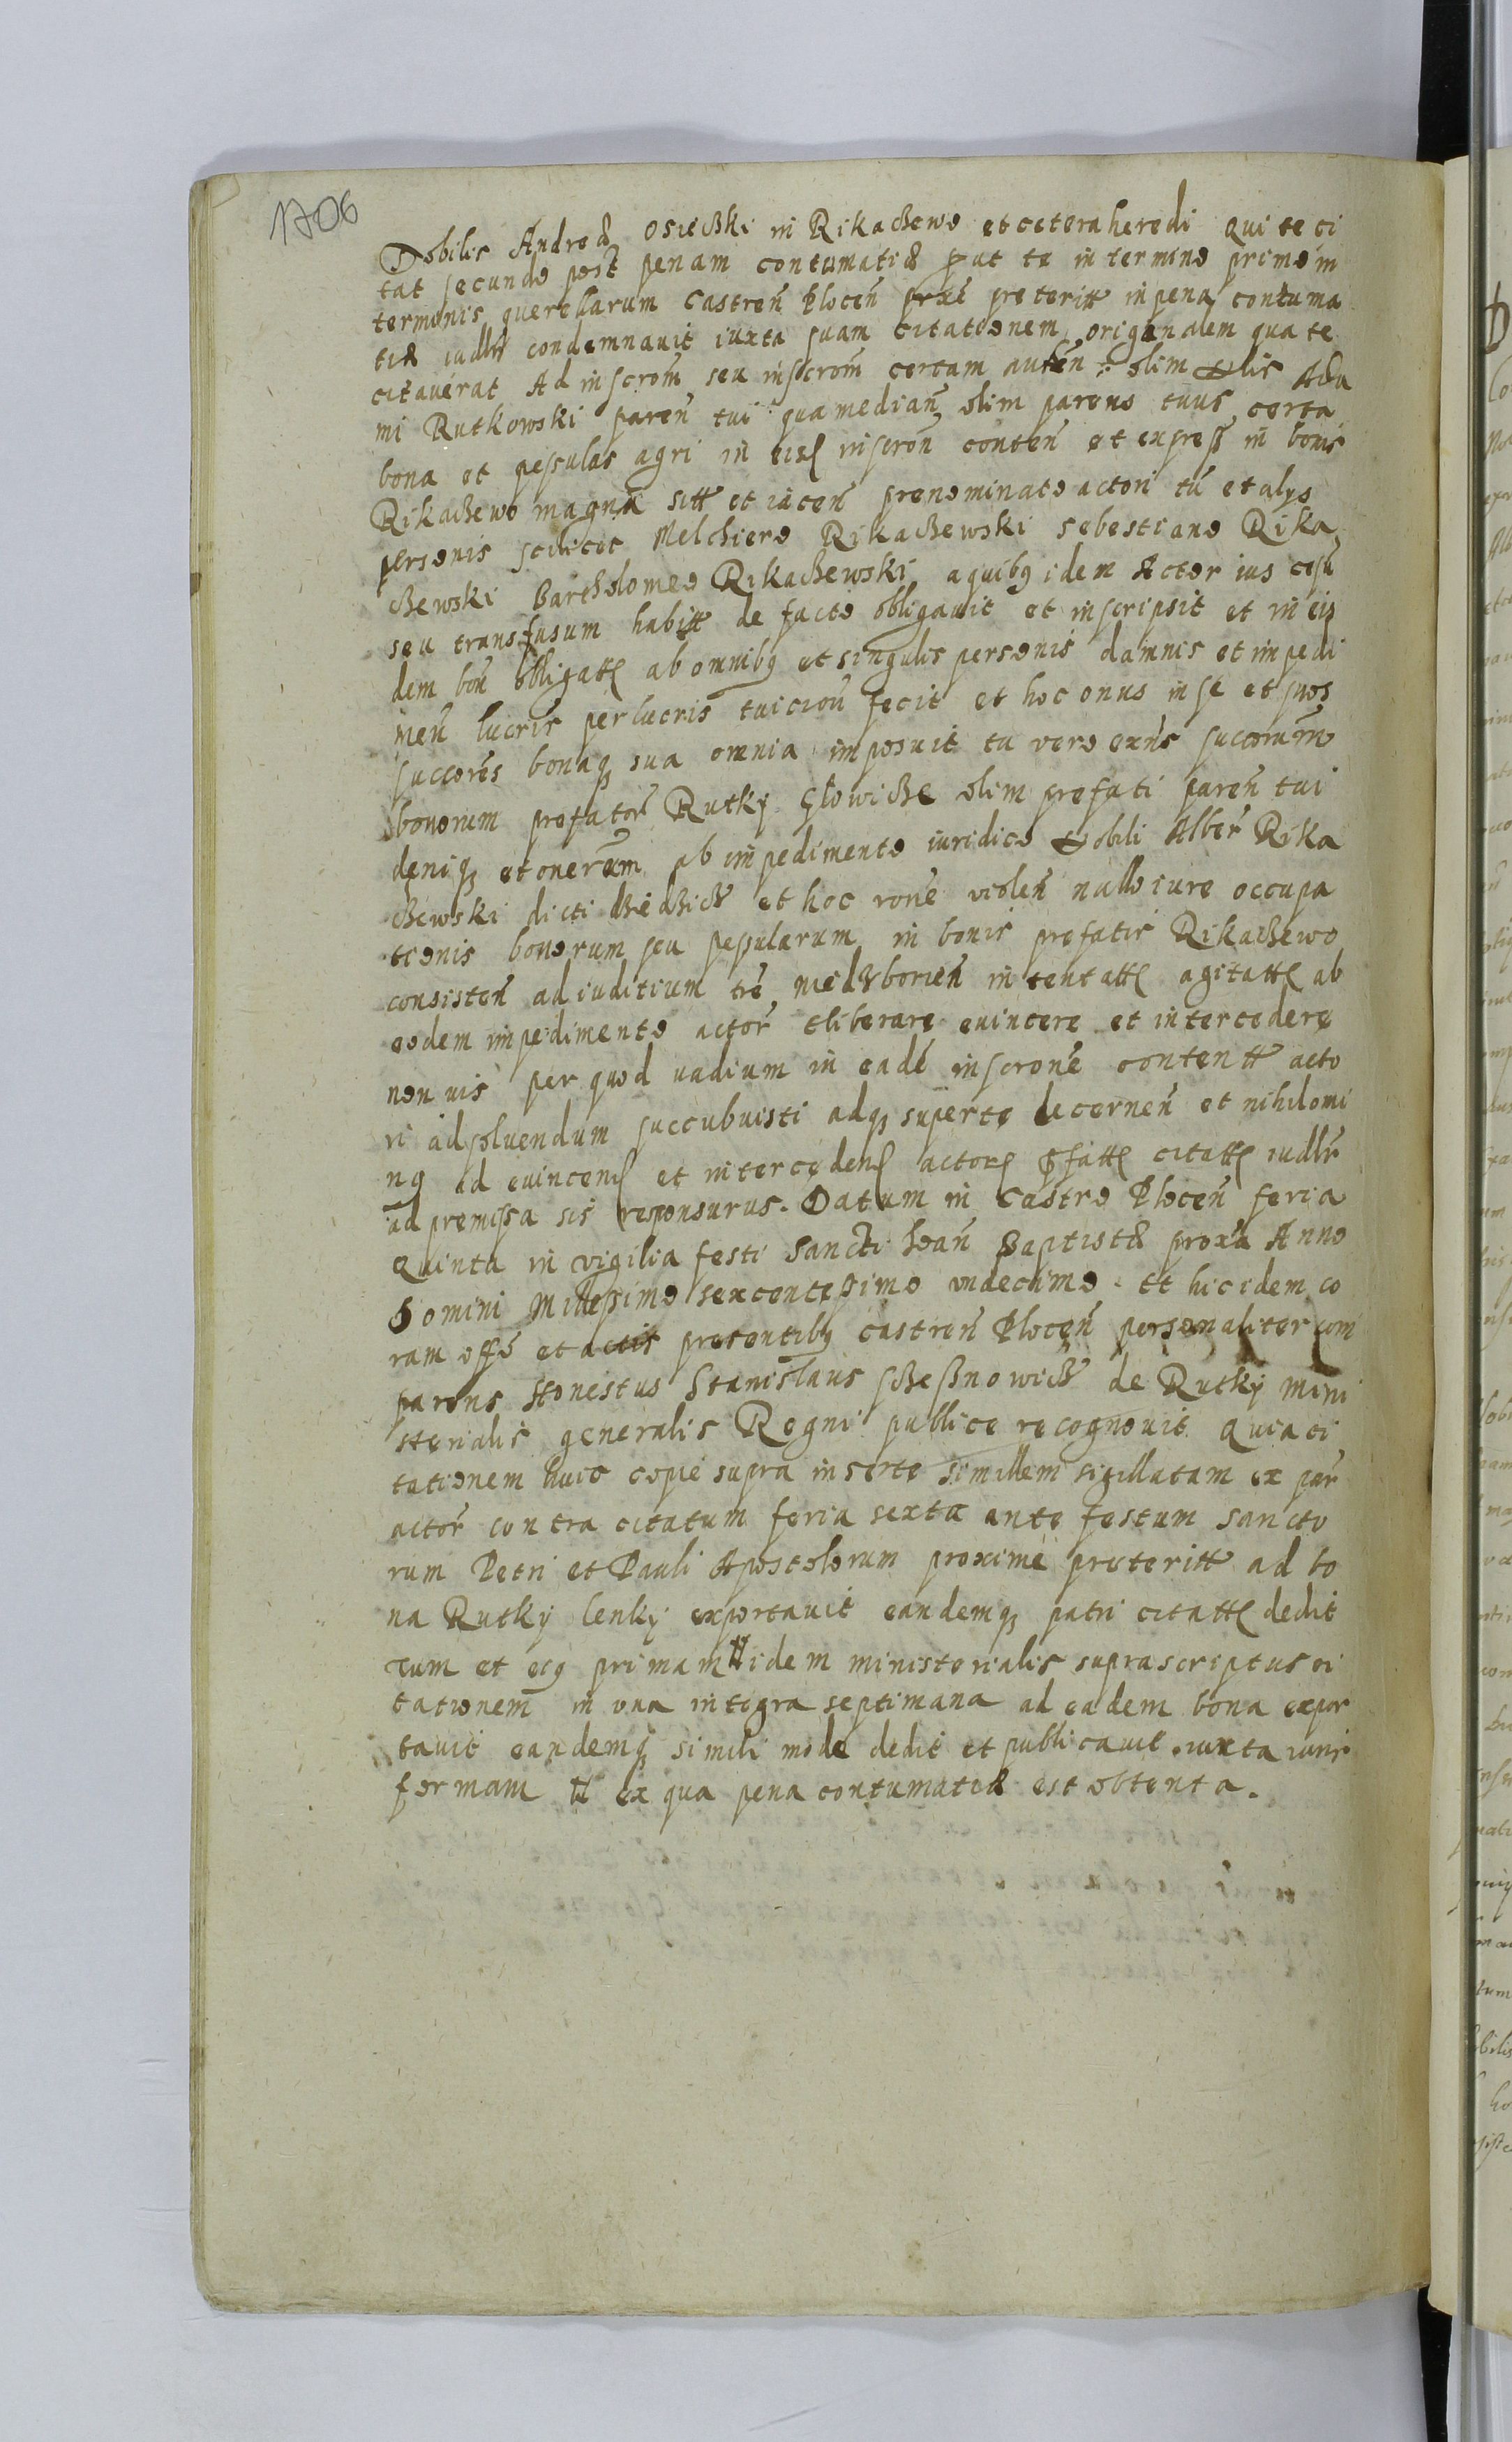 1706
Nobilis Andreæ Osieczki in Rikaczewo et cetera heredi qui te ci
tat secundo post penam contumatiæ prout te in termino primo in
terminis querellarum Castren̄ Plocen̄ prox̄e preteritt in pena contuma
tiæ iudlr condemnauit iuxta suam citationem originalem qua te
citauerat Ad inscrom̄ seu inscrom̄ certam auten̄ olim Nlis Ada
mi Rutkowski paren̄ tui qua median̄ olim parens tuus certa
bona et pessulas agri in eisd inscron̄ conten̄ et express in bonis
Rikaczewo magna sitt et iacen̄ prenominato actori tū et alys
personis scilicet Melchiero Rikaczewski Sebestiano Rika
czewski Bartholomeo Rikaczewski a quibq idem Actor ius cessū
seu transfusum habitt de facto obligauit et inscripsit et in eis
dem bon̄ obligatt ab omnibq et singulis personis damnis et impedi
men̄ lucris perlucris tuicion̄ fecit et hoc onus in se et suos
succores bonaqꝫ sua omnia imposuit tu vero exn̄s succorum̄
bonorum prefator̄ Rutky Głowicze olim prefati paren̄ tui
deniqꝫ et onerum ab impedimento iuridico Nobili Alber̄ Rika
czewski dicti dziedzicz et hoc rone violen̄ nullo iure occupa
tionis bonorum seu pessularum in bonis prefatis Rikaczewo
consisten̄ ad iuditium trē Niedzborien̄ intentatt agitatt ab
eodem impedimento actor̄ eliberare euincere et intercedere
non vis per quod vadium in eadē inscronē contentt acto
ri ad soluendum succubuisti adqꝫ super te decernen̄ et nihilomi
nq ad euincend et intercedend actore pfatt citatt iudlr
ad premissa sis responsurus. Datum in Castro Plocen̄ feria
quinta in vigilia festi Sancti Joan̄ Baptistæ proxa Anno
Domini Millesimo sexcentesimo vndecimo. Et hic idem co
ram offo et actis presentibq castren̄ Plocen̄ personaliter com
parens Honestus Stanislaus de Rutky mini
sterialis generalis Regni publice recognouit Quia ci
tationem huic copie supra inserte simillem sigillatam ex par̄
actor̄ contra citatum feria sexta ante festum sancto
rum Petri et Pauli Apostolorum proxime preteritt ad bo
na Rutky Lenky exportauit eandemqꝫ patri citatt dedit
Tum et eiq primam idem ministerialis suprascriptus ci
tationem in vna integra septimana ad eadem bona expor
tauit eandemqꝫ simili modo dedit et publicauit iuxta iuris
formam ex qua pena contumatiæ est obtenta.